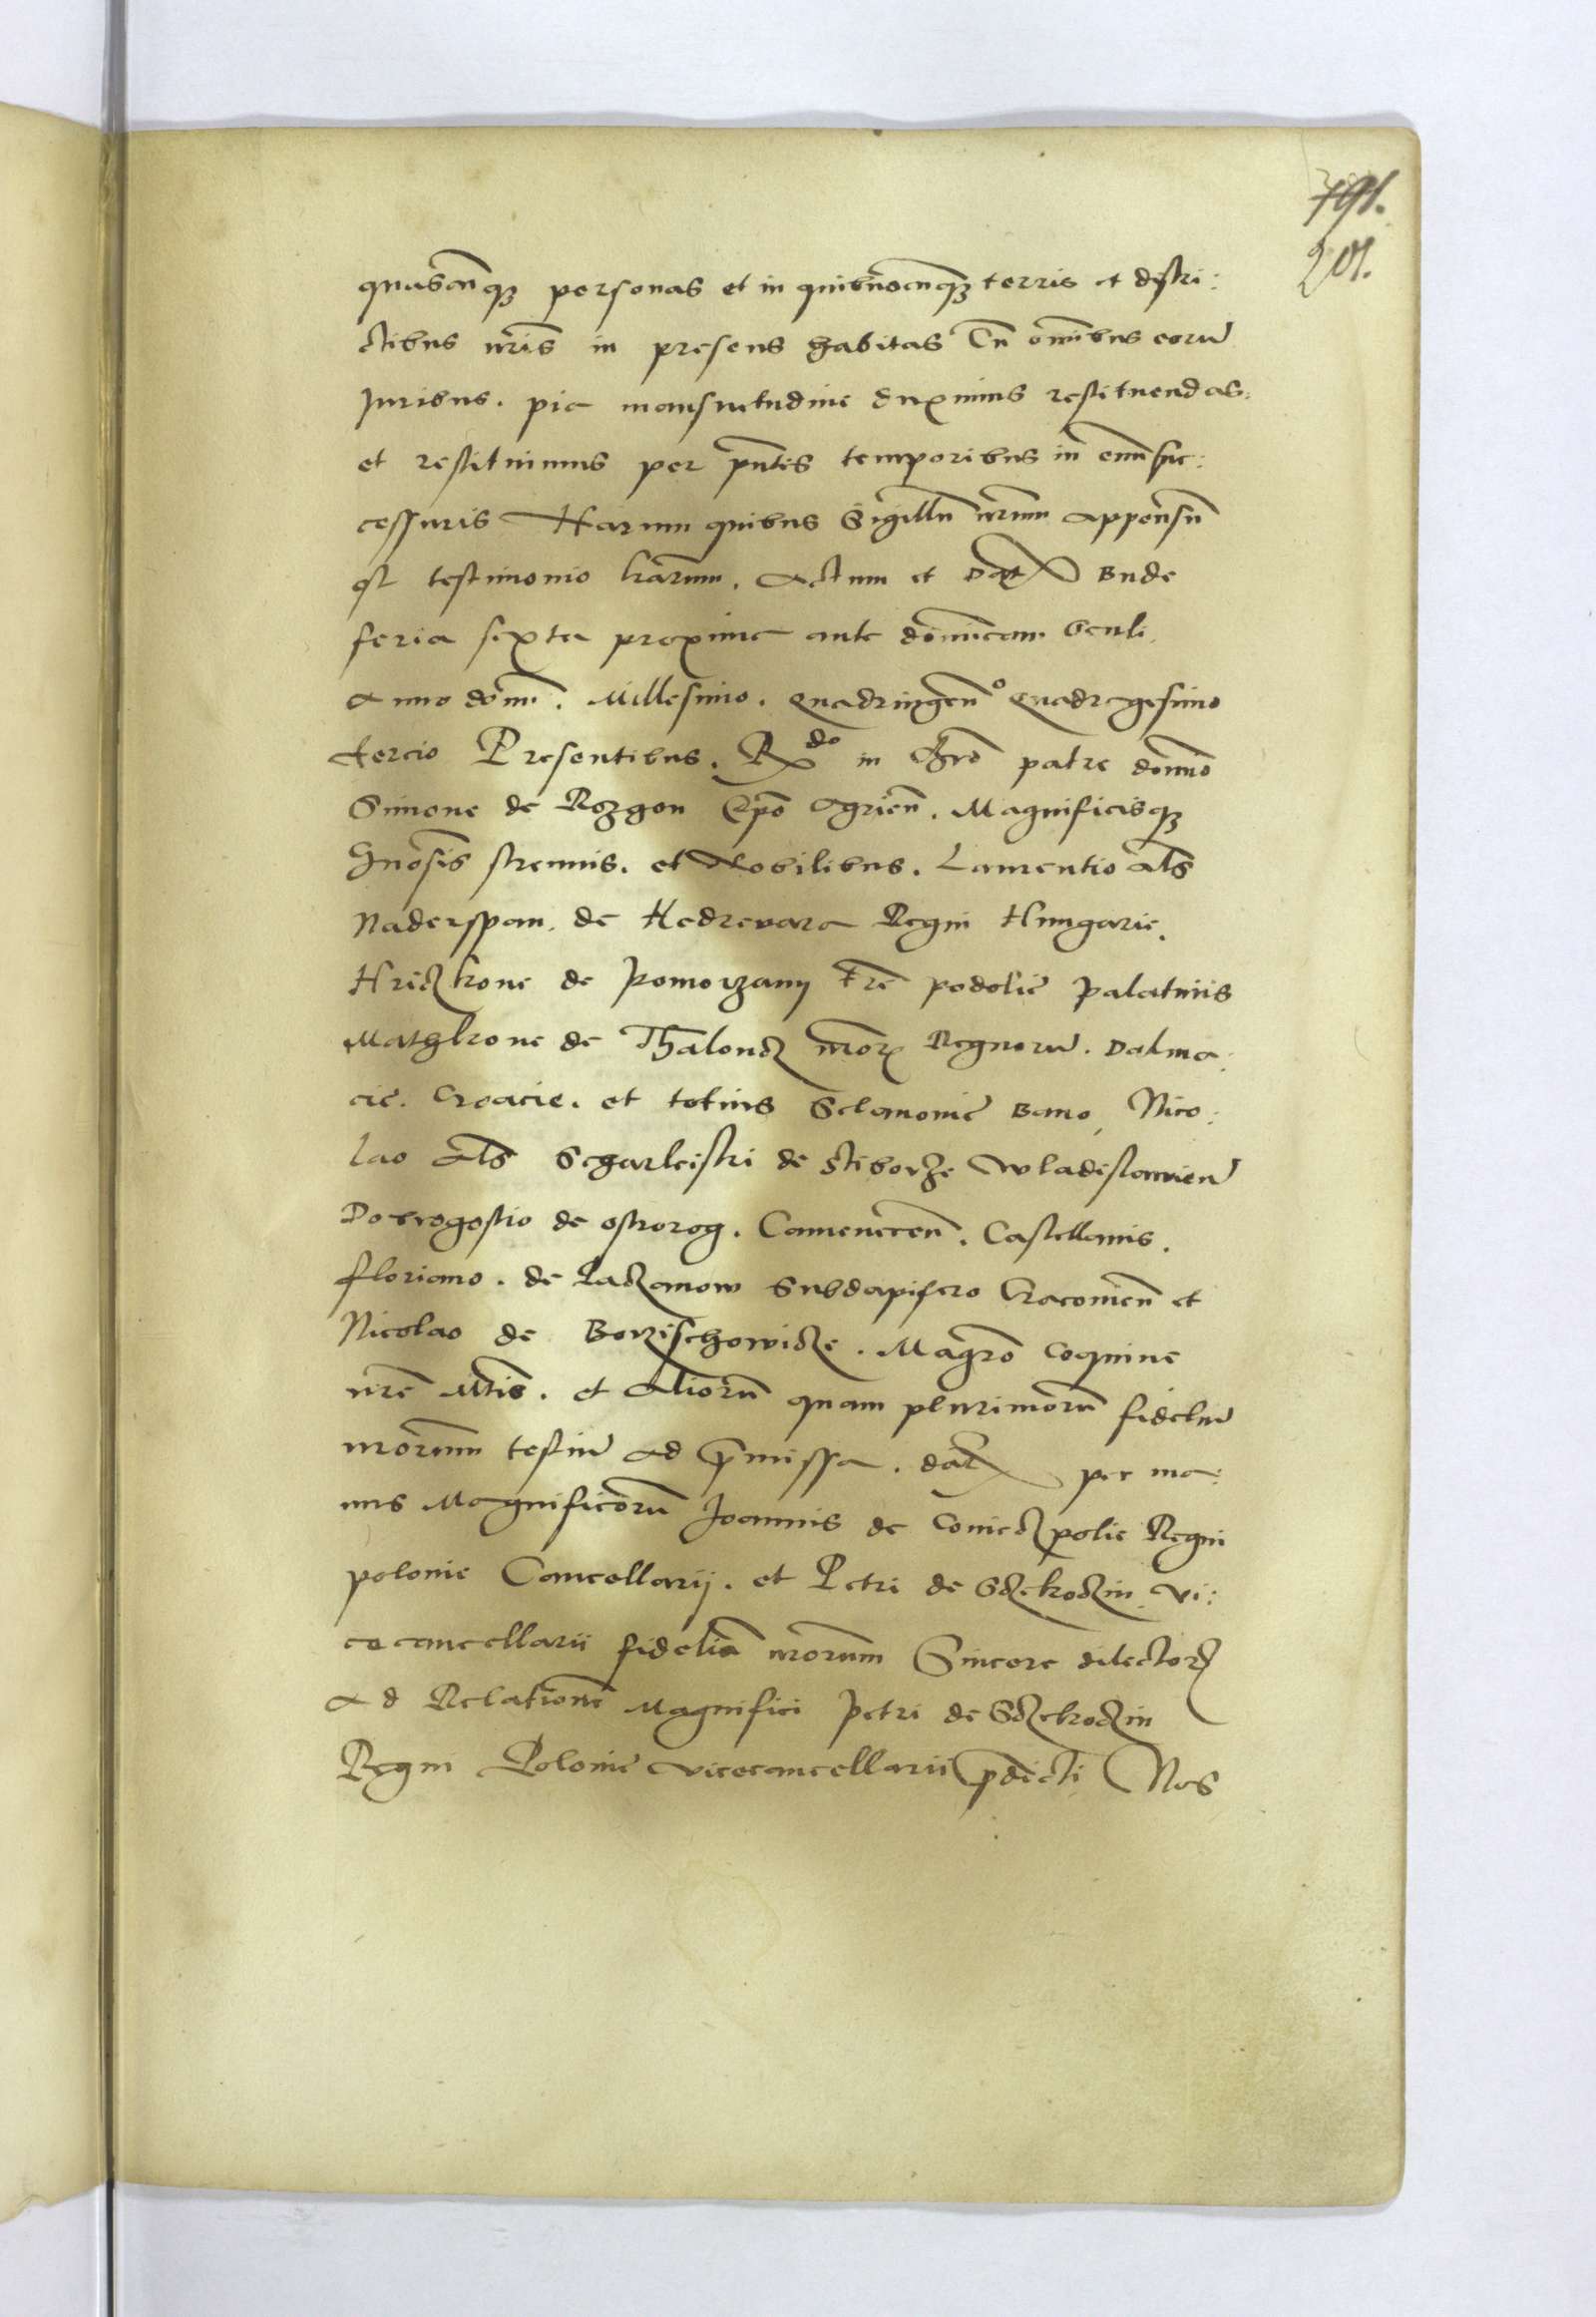 791.
201.
quascūqȝ personas et in quibuscūqȝ terris et distri:
ctibus nr̄is in presens habitas Cū om̄ibus eorū
Juribus. pia mansuetudine duximus restituendas.
et restituimus per pn̄tes temporibus in euū suc:
cessuris Harum quibus Sigillū nr̄um appensū
est testimonio lr̄arum. Actum et Dat Bude
feria sexta proxima ante dominicam Oculi.
Anno domī. Millesimo. Quadringenº Quadragesimo
tercio Presentibus. Rdo in Chro patre domno
Simone de Rozgon Epo Agrien̄. Magnificisqȝ
Gnosis strenuis. et Nobilibus. Laurentio als
Naderspan. de Hedrevara Regni Hungarie.
Hriczkone de Pomorzany tre Podolie Palatinis
Mathkone de Thaloncz nror Regnorū. Dalma:
cie. Croacie. et totius Sclauonie Bano, Nico:
lao als Scharleiski de Stiborze Wladislauien
Dobrogostio de ostrorog. Camenecen̄. Castellanis.
floriano. de Laczanow Subdapifero Cracouien̄ et
Nicolao de Borzischowicze. Magro Coquine
nre Mtis. et Aliorū quam plurimorū fidelium
nrorum testiū ad pmissa. dat per ma:
nus Magnificorū Joannis de Conieczpolie Regni
polonie Cancellarij. et Petri de Sczekoczin Vi:
cecancellarii fidelium nrorum Sincere dilectorȝ
Ad Relationē Magnifici Petri de Sczekoczin
Regni Polonie Vicecancellarii pdicti Nos